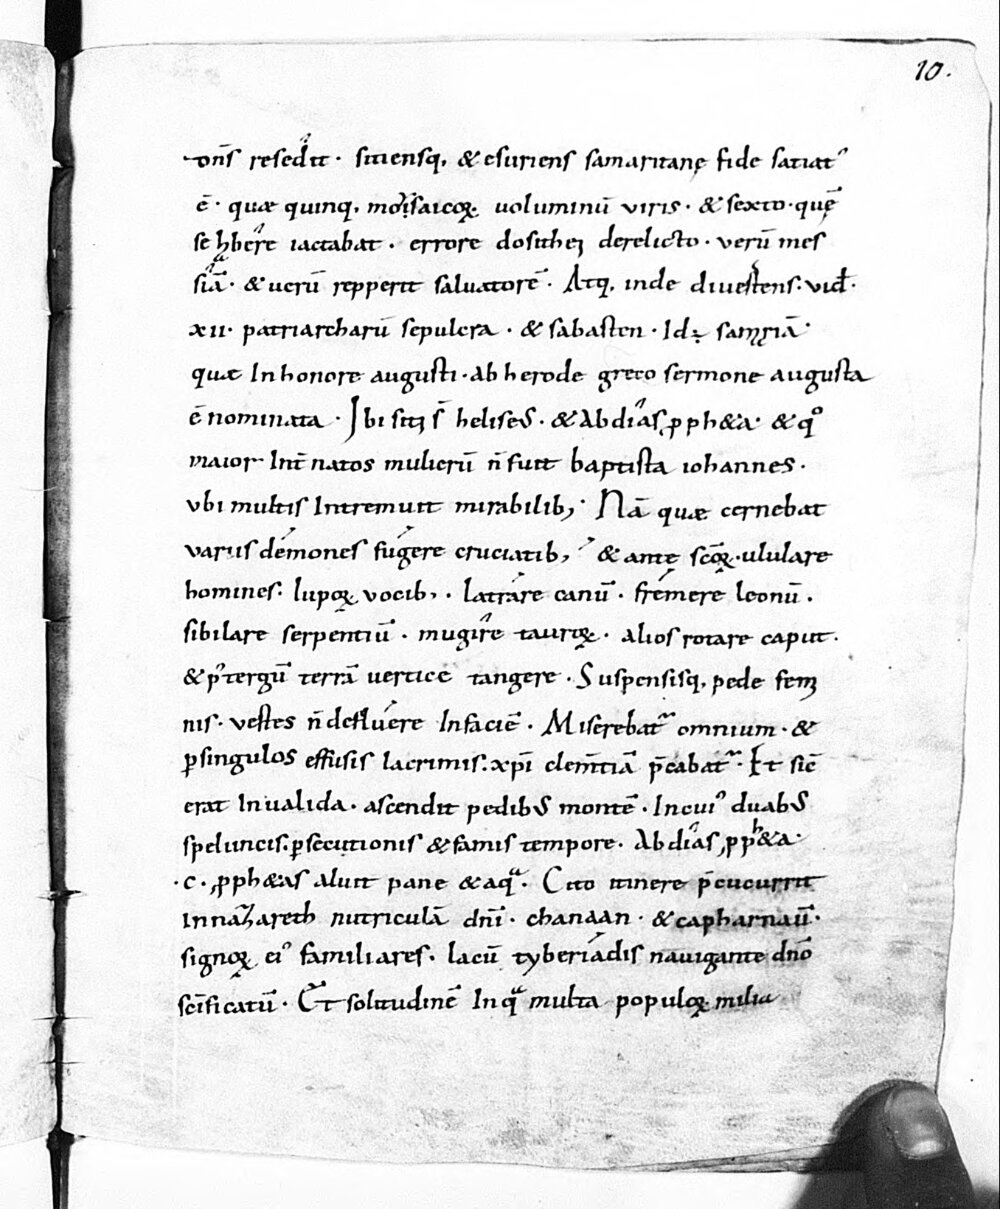 10.
tonis resedit. sitiensq; & esuriens samaritanę fide satiat᾽
ē. quae quinq; moẏsaicoꝝ uoluminū viris. & sexto. quē
se habere iactabat. errore dosithei derelicto. verū mes
siā. & uerū repperit saluatorē. Atq; inde diuertens: vid.
xii. patriarcharū sepulcra. & sabasten. Id ÷ samariā
quae In honore augusti. ab herode greco sermone augusta
ē nominata. Ibi siti s̄ heliseus. & Abdias, ꝓph&a. & qͦ
maior Int̄ natos mulierū n̄ fuit baptista iohannes.
vbi multis Intremuit mirabilib; Nā quae cernebat
variis démones fúgere cruciatib; & ante sc̄oꝝ. ululare
homines: lupoꝝ vocib;. latrare canū. frémere leonū.
sibilare serpentiū. mugire tauroꝝ. alios rotare caput.
& p᾽ tergū terrā uertice tangere. Suspensisq; pede femi
nis. vestes n̄ defluere In faciē. Miserebat᾽ omnium. &
ꝑ singulos effusis lacrimis: xp̄i clem̄tiā p̄cabat᾽. Et sic̄
erat Inualida. ascendit pedibus montē. In cui᾽ duabus
speluncis: ꝑsecutionis & famis tempore. Abdias, ꝓph&a.
.c. ꝓph&as aluit pane & aqͣ. Cito itinere p̄cucurrit
in nazareth nutriculā dn̄i. chanaan. & capharnaū.
signoꝝ ei᾽ familiares. lacū tyberiádis nauigante dn̄o
sc̄ificatū. Et solitudinē In qͣ multa populoꝝ milia